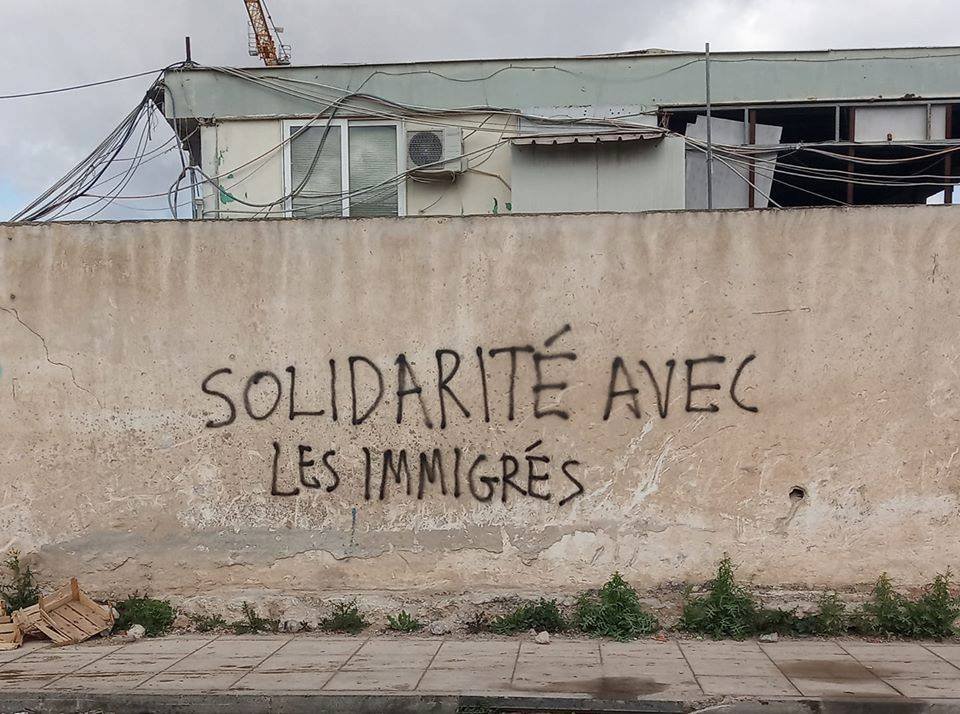 SOLIDARITÉ AVEC
LES IMMIGRÉS